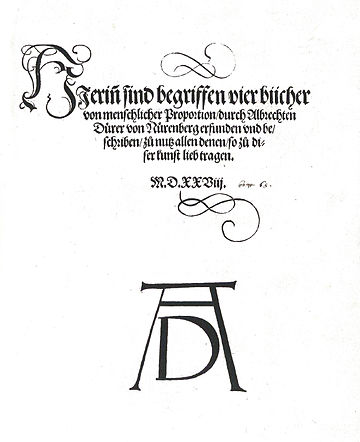 Hierin̄ sind begriffen vier bücher
von menschlicher Proportion/durch Albrechten
Dürer von Nürenberg erfunden vnd be/
schriben/zů nutz allen denen/so zů di-
ser kunst lieb tragen.
M.D.XXViij.
AD